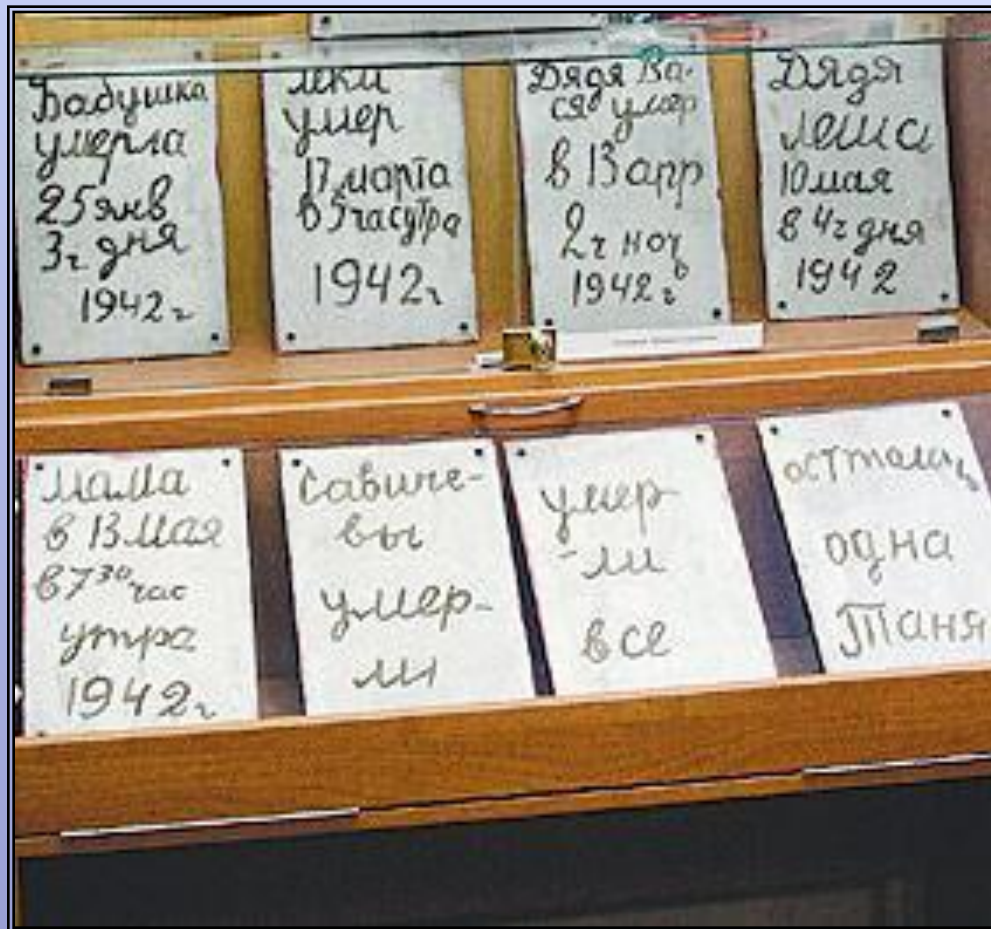 Бабушка
умерла
25 янв
3ч дня
1942г
Лека
умер
17 марта
в 5 час утра
1942г
Дядя Ва-
ся умер
в 13 апр
2ч ночь
1942г
Дядя
Леша
10 мая
в 4ч дня
1942
Мама
в 13 мая
в 7 30 час
утра
1942г
Савиче-
вы
умер-
ли
умер
-ли
все
осталась
одна
Таня